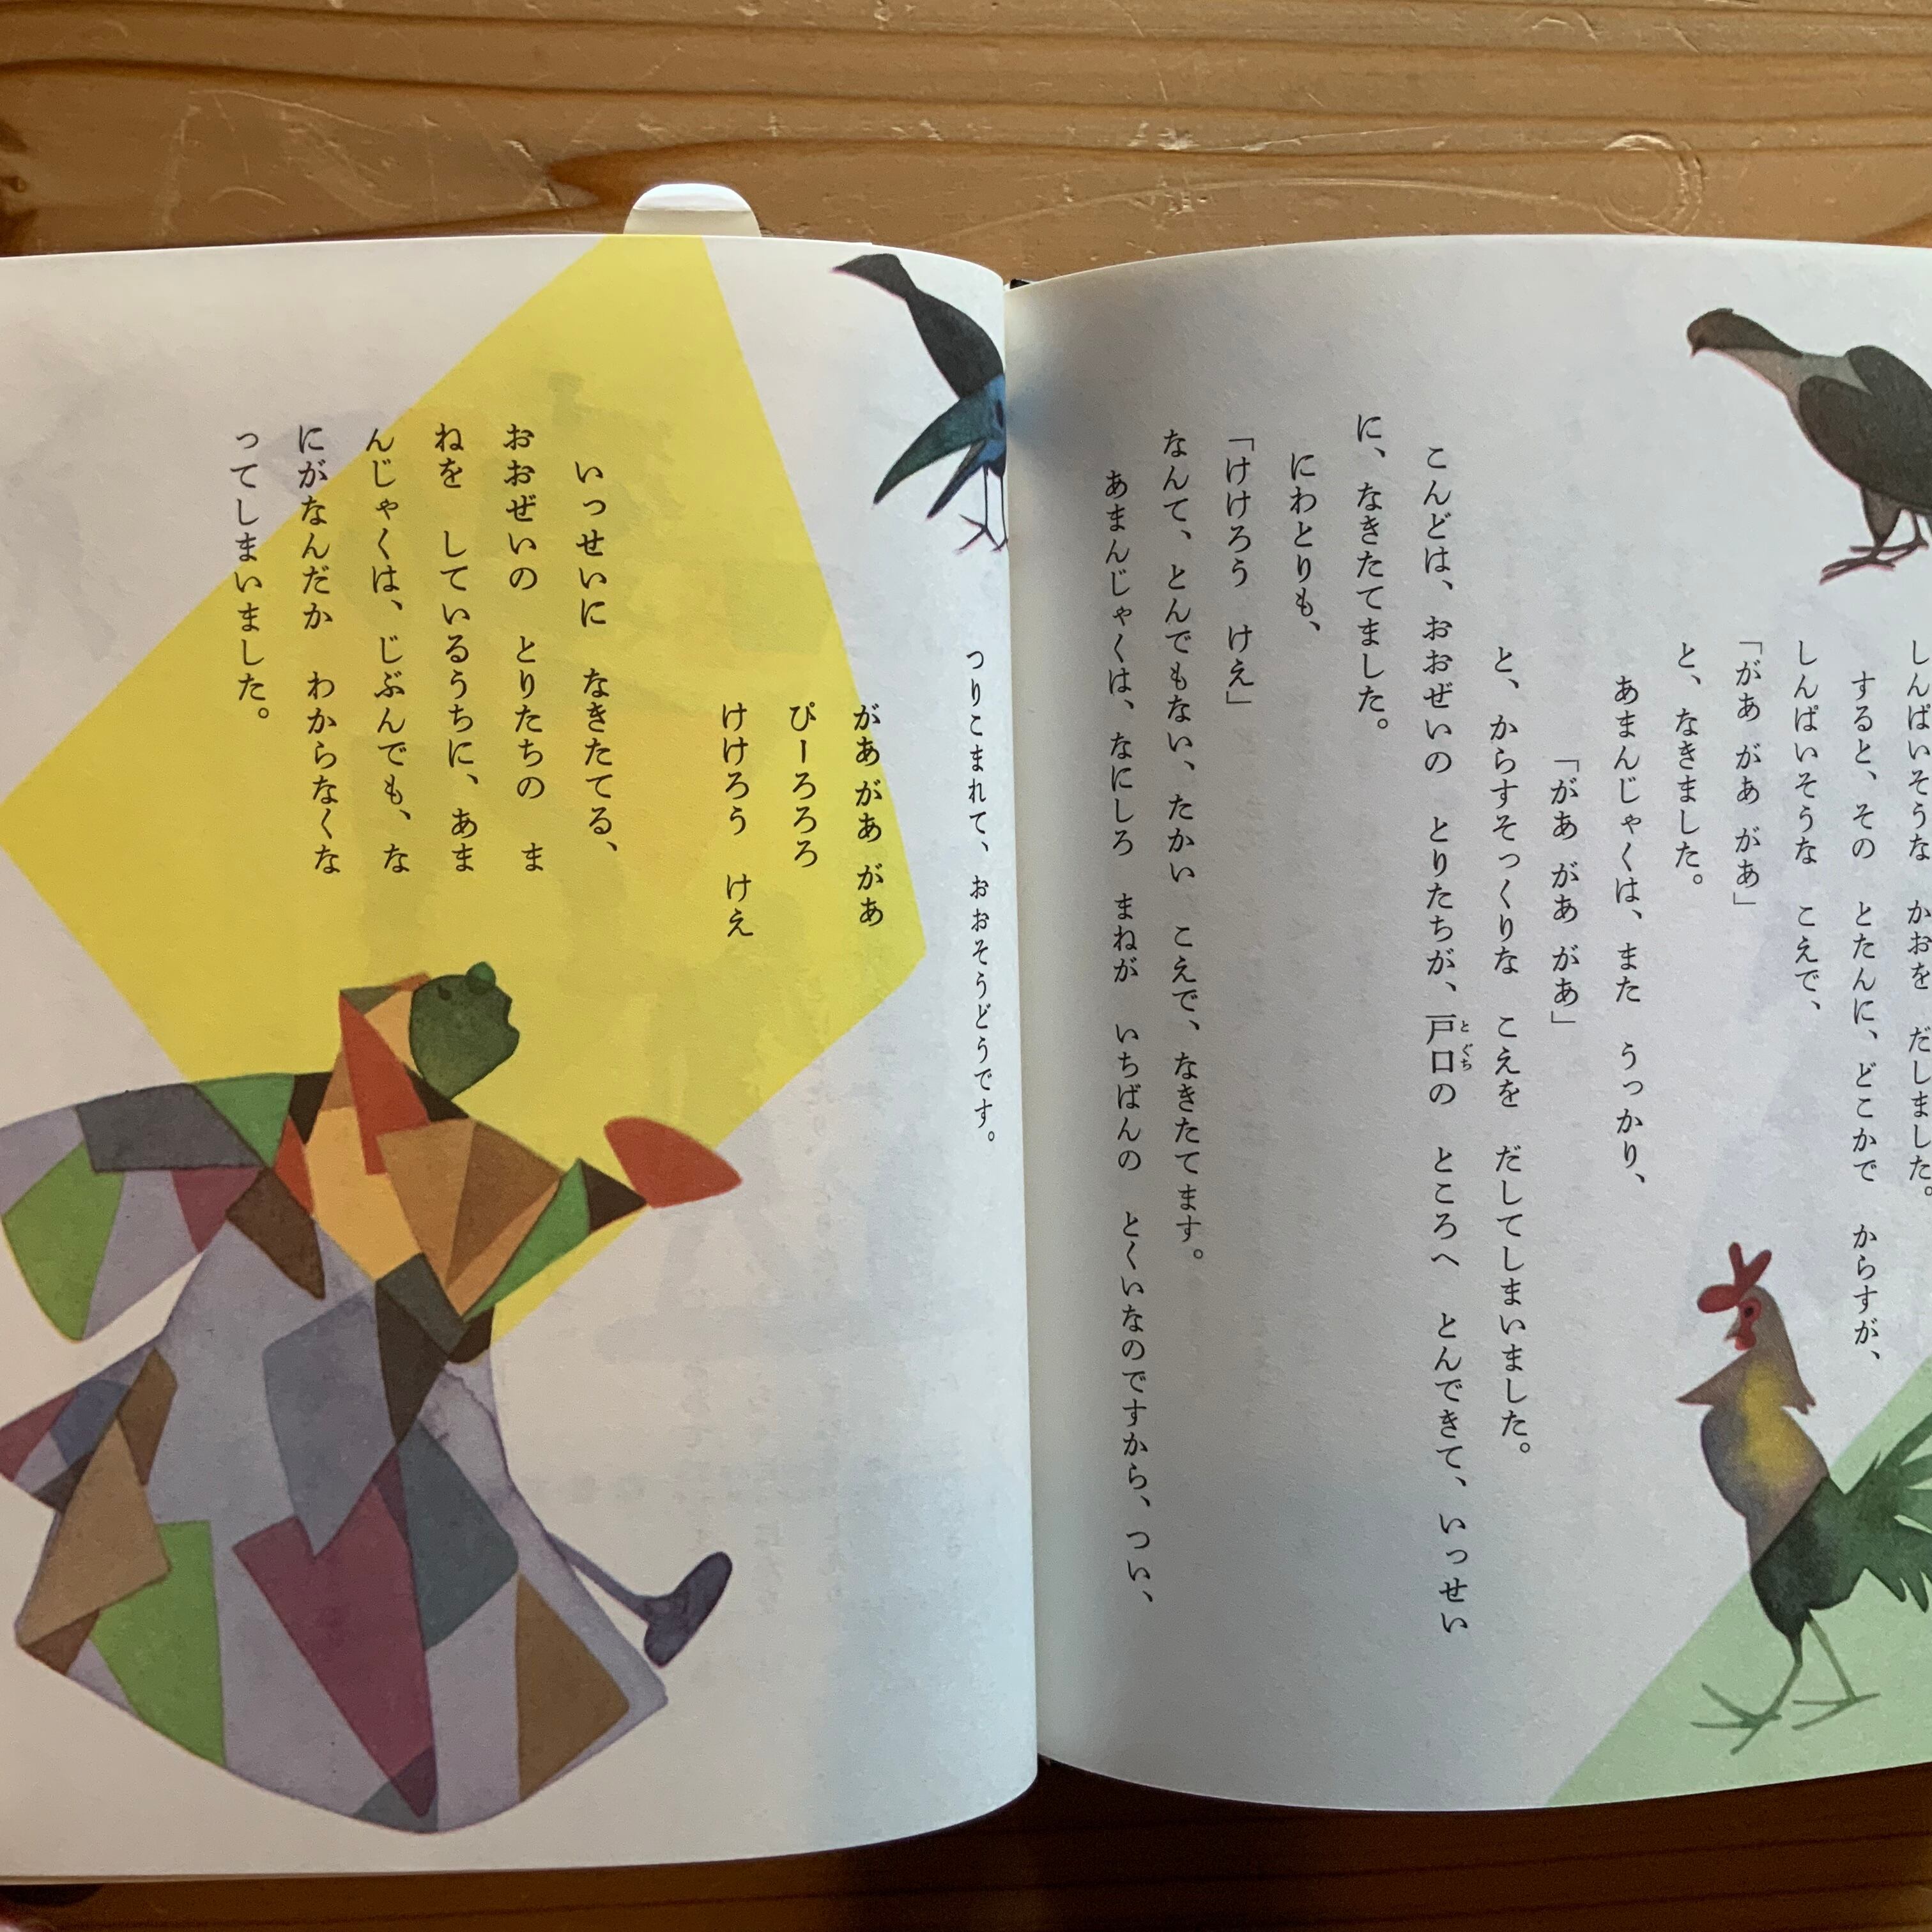 しんぱいそうな　かおを　だしました。
すると、その　とたんに、どこかで　からすが、
しんぱいそうな　こえで、
「があ　があ　があ」
と、なきました。
あまんじゃくは、また　うっかり、
「があ　があ　があ」
と、からすそっくりな　こえを　だしてしまいました。
こんどは、おおぜいの　とりたちが、戸口の　ところへ　とんできて、いっせい
とぐち
に、なきたてました。
にわとりも、
「けけろう　けえ」
なんて、とんでもない、たかい　こえで、なきたてます。
あまんじゃくは、なにしろ　まねが　いちばんの　とくいなのですから、つい、
つりこまれて、おおそうどうです。
があ　があ　があ
ぴーろろろ
けけろう　けえ
いっせいに　なきたてる、
おおぜいの　とりたちの　ま
ねを　しているうちに、あま
んじゃくは、じぶんでも、な
にがなんだか　わからなくな
ってしまいました。